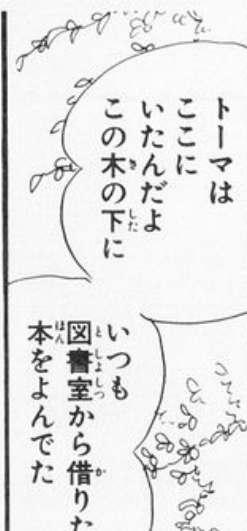 トーマは
ここに
いたんだよ
この木の下に
いつも
図書室から借りた
本をよんでた